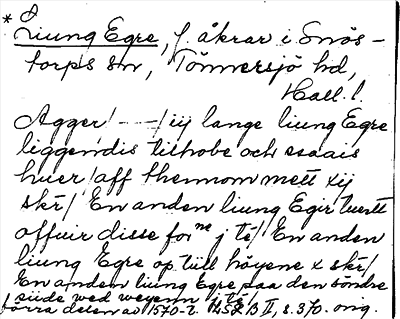 * Liung Egre, f. åkrar i Snös-
torps sn, Tönnersjö hd,
Hall. l.
Agger/ - - -/ iij lange liung Egre
liggendis tilhobe och
huer/ aff thennom mett xij
skr/ En anden liung Egir tuertt
offuir disse for ne j te/ En anden
liung Egre op till höyene x skr/
En anden liung Egre paa den söndre
siide wed weyenn
förra delen av 1570-t. 13 II, s. 370. orig.